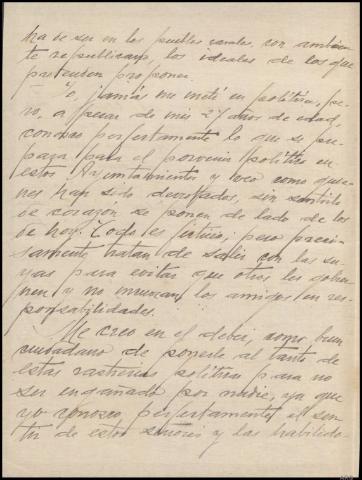 ha de ser en los pueblos rurales, con ambien
te republicano, los ideales de los que
pretenden proponer.
Yo, jamás me metí en política, pe
ro, a pesar de mis 27 años de edad,
conozco perfectamente lo que se pre
para para el porvenir político en
estos Ayuntamientos y veo como quie
nes han sido derrotados, sin sentirlo
de corazón se ponen de lado de los
de hoy. Todo es ; pero preci
samente tratan de salir con las su
yas para evitar que otros les gobier
nen y no incurran los amigos en res
ponsabilidades.
Me creo en el deber, como buen
ciudadano de ponerle al tanto de
estas rastrerias politicas para no
ser engañado por nadie, ya que
yo conozco perfectamente el sen
tir de estos señores y las habilida-